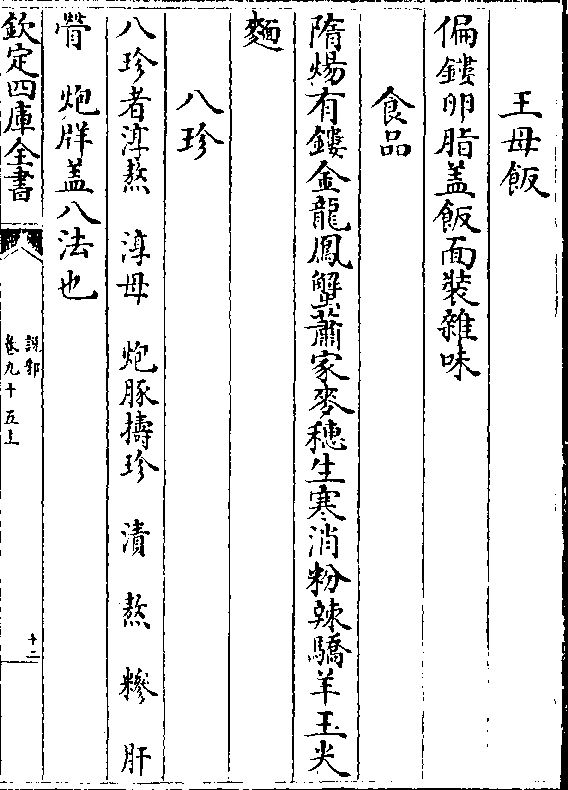 王母飯
偏鏤卵脂盖飯面裝雜味
食品
隋煬有鏤金龍鳳蟹蕭家麥穗生寒消粉辣驕羊玉尖
麵
八珍
八珍者淳熬 淳母 炮豚擣珍 漬 熬 糝 肝
膋 炮牂盖八法也
欽定四庫全書
說郛
卷九十五上
十二